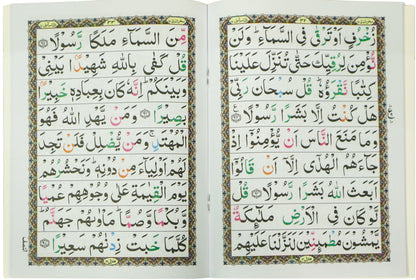 زُخْرُفٍ اَوْ تَرْقٰى فِي السَّمَآءِ ؕ وَلَنْ
نُّؤْمِنَ لِرُقِيِّكَ حَتّٰى تُنَزِّلَ عَلَيْنَا
كِتٰبًا نَّقْرَؤُهٗ ؕ قُلْ سُبْحَانَ رَبِّيْ
هَلْ كُنْتُ اِلَّا بَشَرًا رَّسُوْلًا
وَمَا مَنَعَ النَّاسَ اَنْ يُّؤْمِنُوْۤا اِذْ
جَآءَهُمُ الْهُدٰۤى اِلَّاۤ اَنْ قَالُوْۤا
اَبَعَثَ اللّٰهُ بَشَرًا رَّسُوْلًا قُلْ
لَّوْ كَانَ فِي الْاَرْضِ مَلٰٓئِكَةٌ
يَّمْشُوْنَ مُطْمَئِنِّيْنَ لَنَزَّلْنَا عَلَيْهِمْ
مِّنَ السَّمَآءِ مَلَكًا رَّسُوْلًا
قُلْ كَفٰى بِاللّٰهِ شَهِيْدًۢا بَيْنِيْ
وَبَيْنَكُمْ ؕ اِنَّهٗ كَانَ بِعِبَادِهٖ خَبِيْرًۢا
بَصِيْرًا وَمَنْ يَّهْدِ اللّٰهُ فَهُوَ
الْمُهْتَدِ ۚ وَمَنْ يُّضْلِلْ فَلَنْ تَجِدَ
لَهُمْ اَوْلِيَآءَ مِنْ دُوْنِهٖ ؕ وَنَحْشُرُهُمْ
يَوْمَ الْقِيٰمَةِ عَلٰى وُجُوْهِهِمْ عُمْيًا
وَّبُكْمًا وَّصُمًّا ؕ مَاْوٰىهُمْ جَهَنَّمُ ؕ
كُلَّمَا خَبَتْ زِدْنٰهُمْ سَعِيْرًا